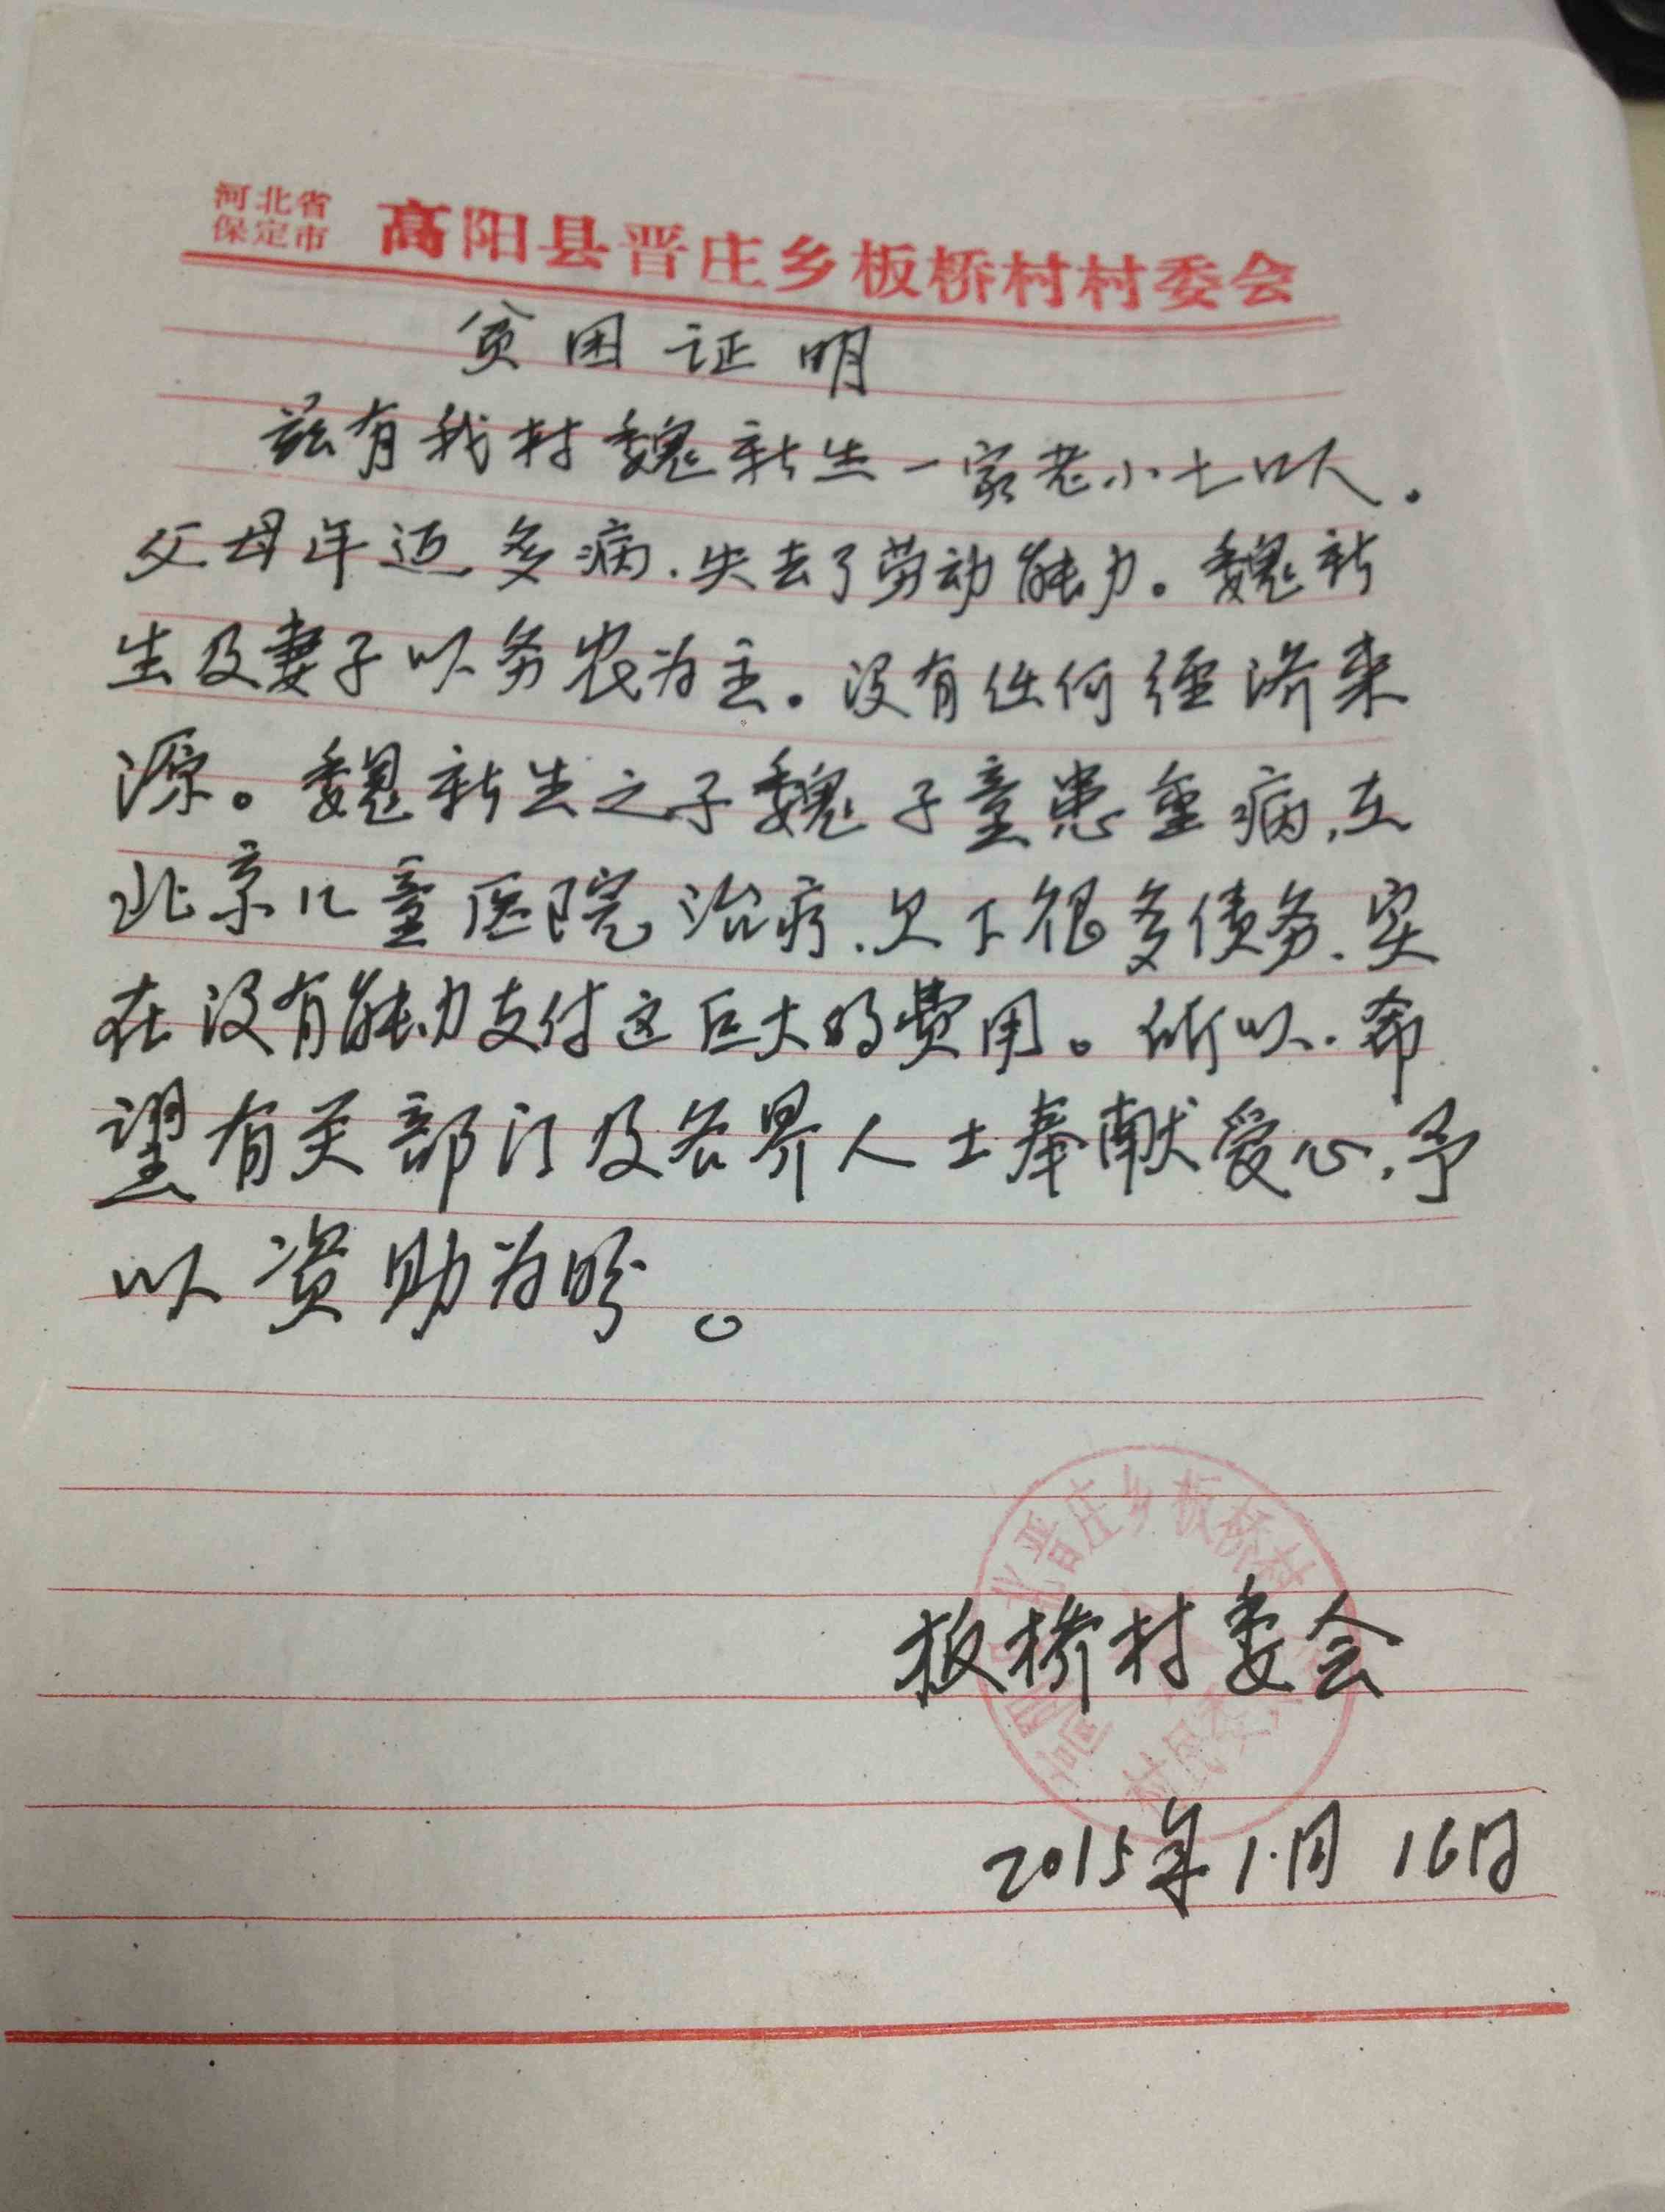 河北省
保定市
高阳县晋庄乡板桥村村委会
贫困证明
兹有我村魏新生一家老小七口人。
父母年迈多病.失去了劳动能力。魏新
生及妻子以务农为主。没有任何经济来
源。魏新生之子魏子童患重病,在
北京儿童医院治疗.欠下很多债务.实
在没有能力支付这巨大的费用。所以.希
望有关部门及各界人士奉献爱心,予
以资助为盼。
晋庄乡板桥村
板桥村委会
村民委
2015年1.月16日